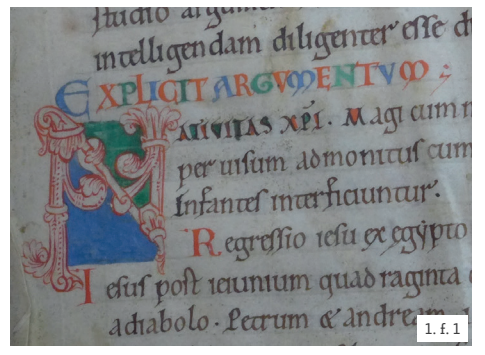 studio argum
intelligendam diligenter esse di
EXPLICIT ARGUMENTUM ;
NATIVITAS XPI. Magi cum m
per uisum admonitus cum
Infantes interficiuntur.
Regressio iesu ex egẏpto
Iesus post ieiunium quadraginta
adiabolo. Petrum & andream
1. f. 1